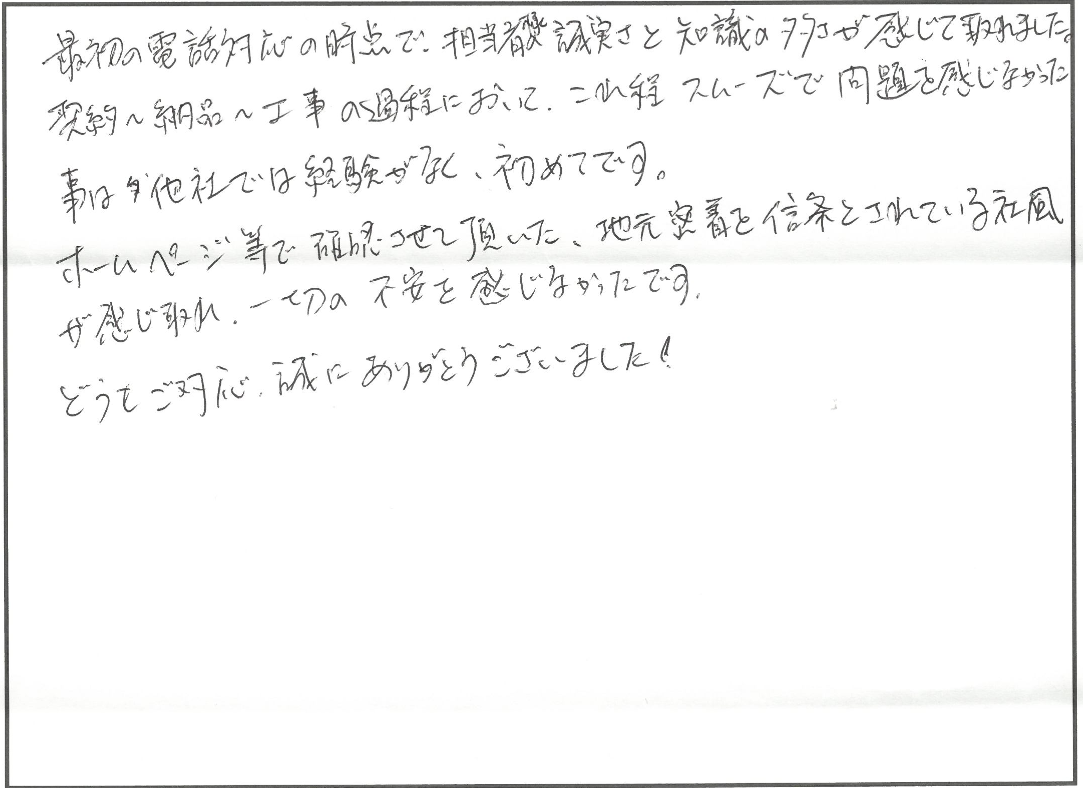 最初の電話対応の時点で、担当者様誠実さと知識の多さが感じて取れました。
契約～納品～工事の過程において、これ程スムーズで問題を感じなかった
事は他社では経験がなく、初めてです。
ホームページ等で確認させて頂いた、地元密着を信条とされている社風
が感じ取れ、一切の不安を感じなかったです。
どうもご対応、誠にありがとうございました!